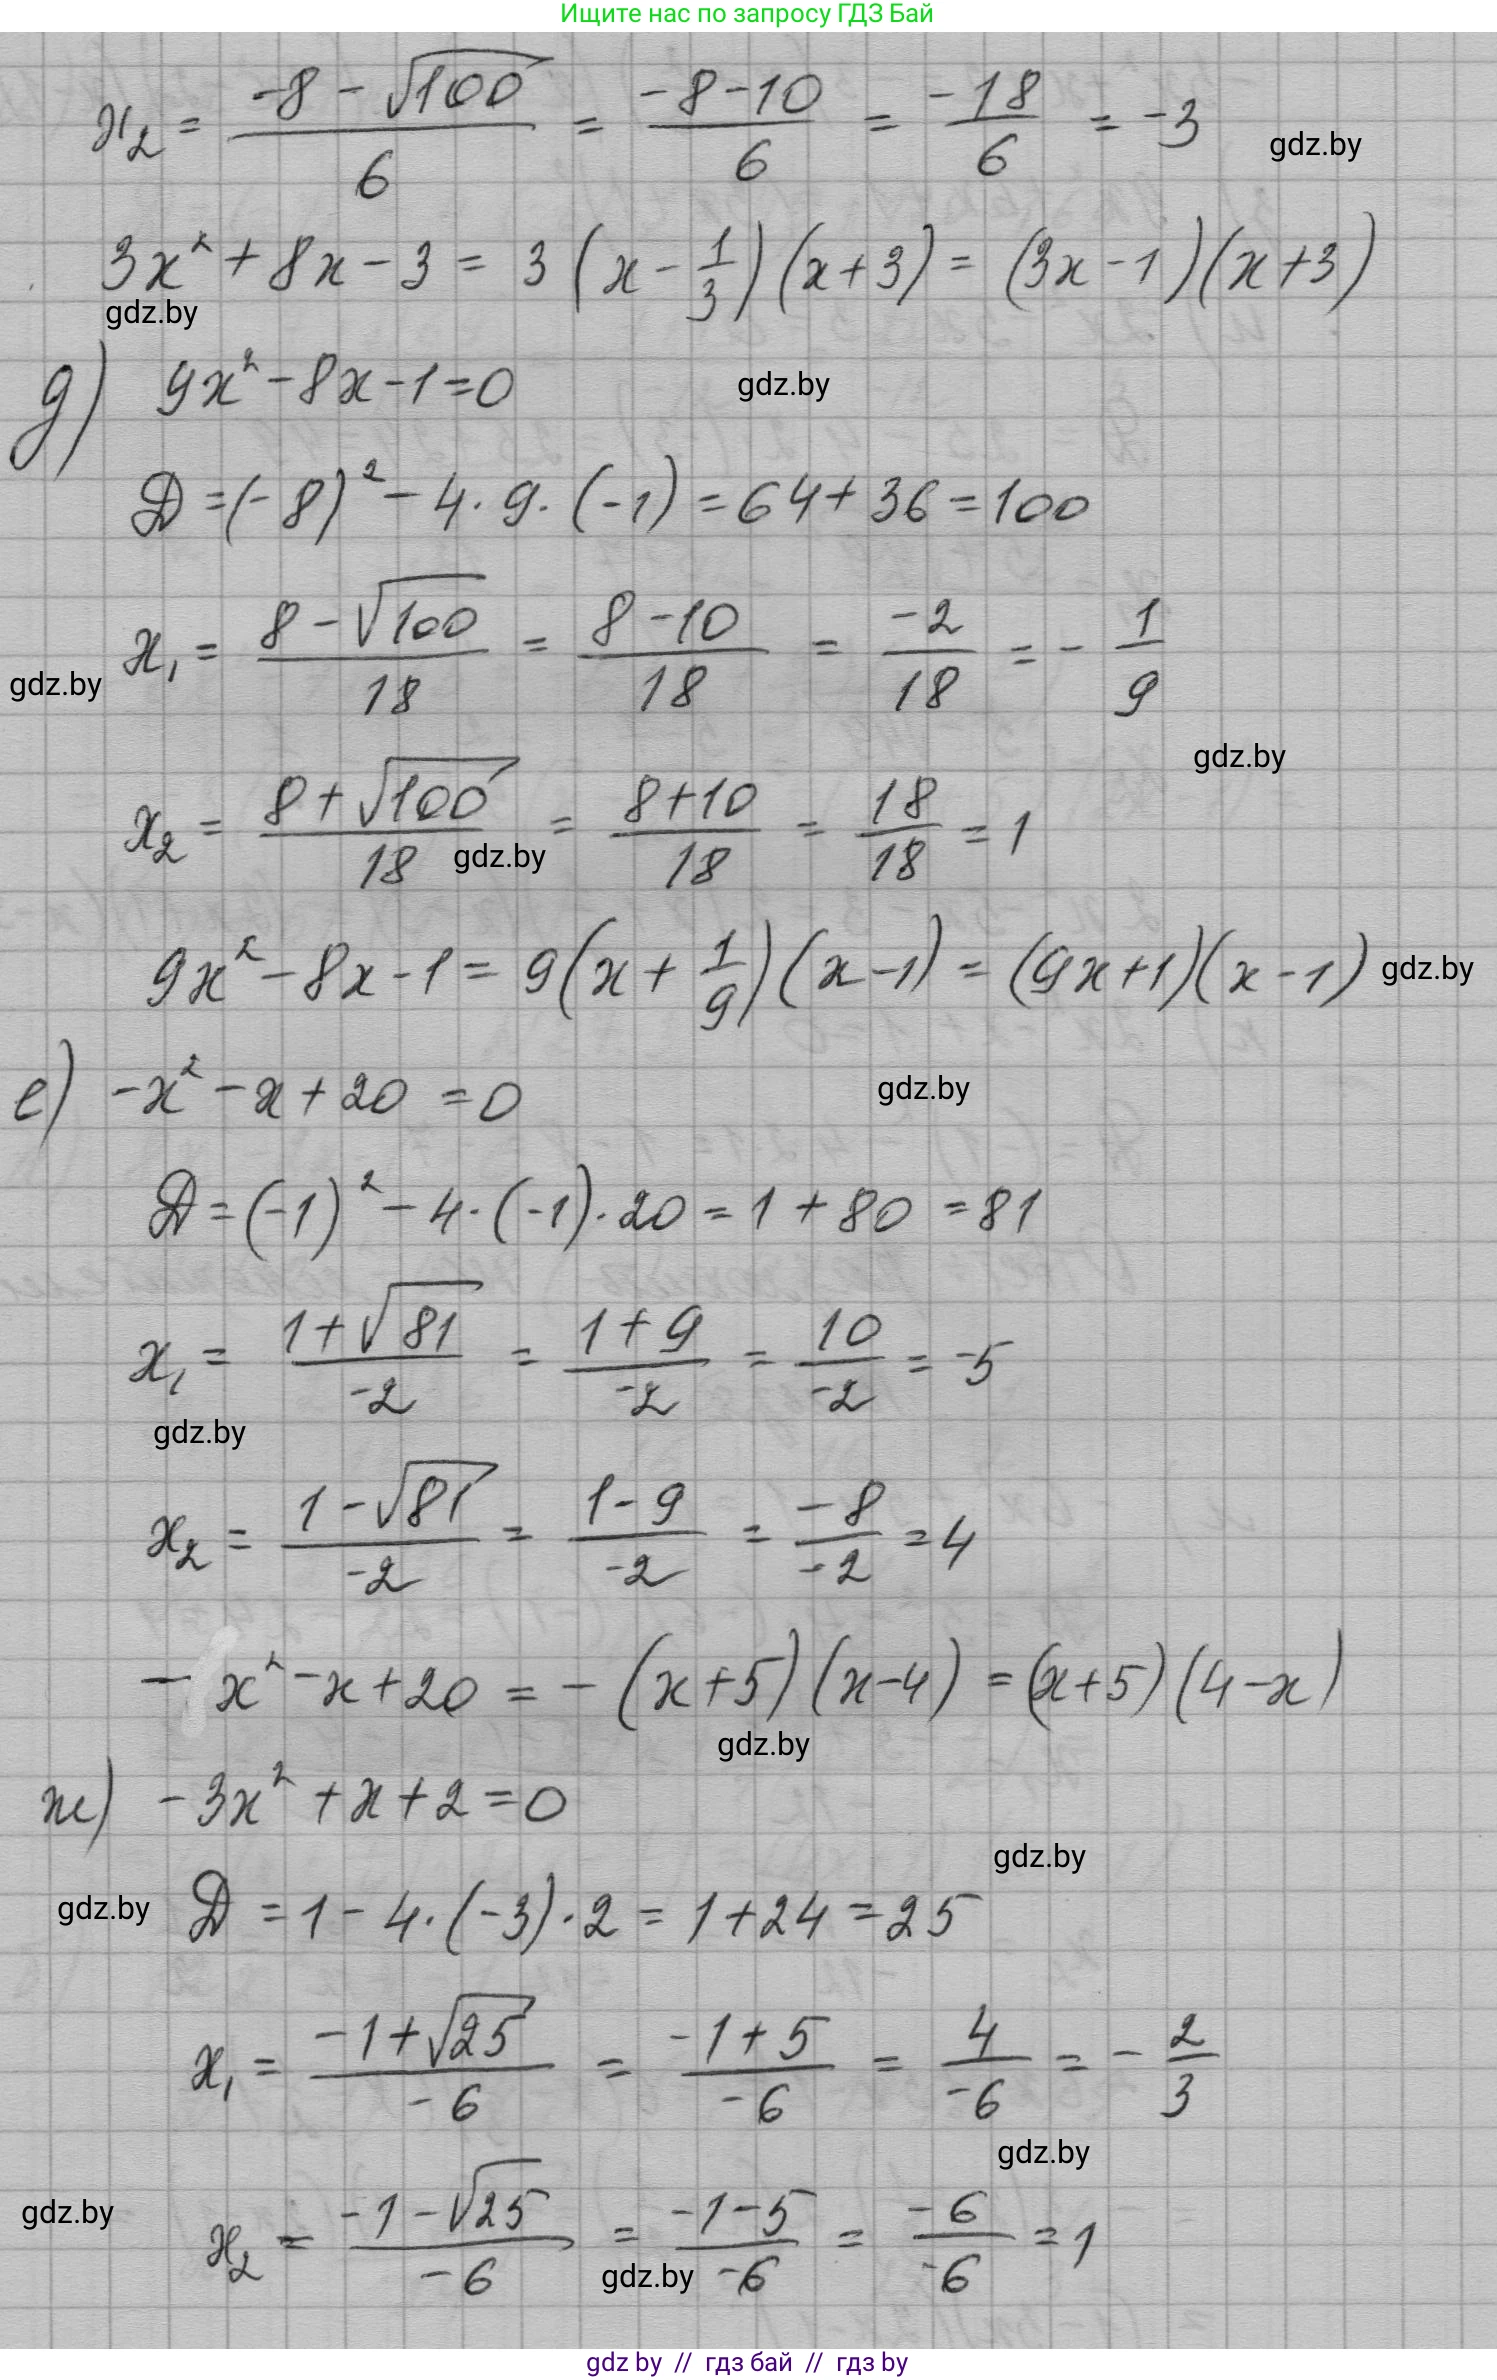 Ищите нас по запросу ГДЗ Бай
x₂ = (-8 - √100)/6 = (-8-10)/6 = -18/6 = -3
gdz.by
3x² + 8x - 3 = 3(x - 1/3)(x+3) = (3x-1)(x+3)
gdz.by
д) 9x² - 8x - 1 = 0
gdz.by
Д = (-8)² - 4·9·(-1) = 64 + 36 = 100
x₁ = (8 - √100)/18 = (8-10)/18 = -2/18 = -1/9
gdz.by
gdz.by
x₂ = (8 + √100)/18 = (8+10)/18 = 18/18 = 1
gdz.by
9x² - 8x - 1 = 9(x + 1/9)(x-1) = (9x+1)(x-1)
gdz.by
е) -x² - x + 20 = 0
gdz.by
Д = (-1)² - 4·(-1)·20 = 1 + 80 = 81
x₁ = (1+√81)/-2 = (1+9)/-2 = 10/-2 = -5
gdz.by
x₂ = (1-√81)/-2 = (1-9)/-2 = -8/-2 = 4
-x² - x + 20 = -(x+5)(x-4) = (x+5)(4-x)
gdz.by
ж) -3x² + x + 2 = 0
gdz.by
gdz.by
Д = 1 - 4·(-3)·2 = 1+24 = 25
x₁ = (-1+√25)/-6 = (-1+5)/-6 = 4/-6 = -2/3
gdz.by
gdz.by
x₂ = (-1-√25)/-6 = (-1-5)/-6 = -6/-6 = 1
gdz.by
gdz by // гдз бай // гдз by